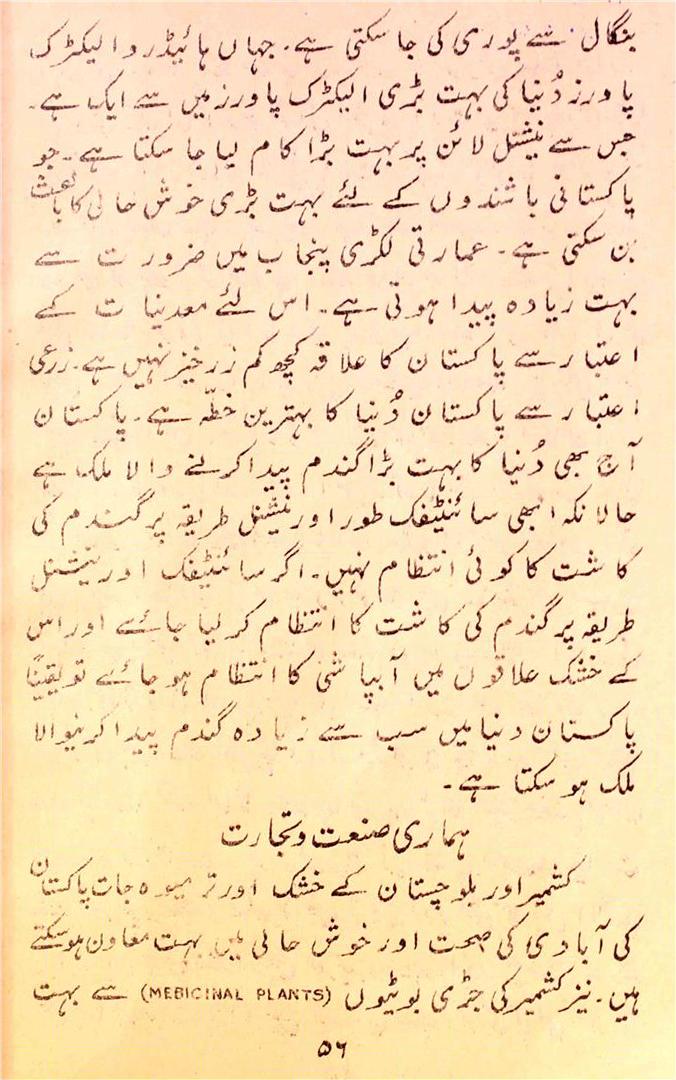 بنگال سے پوری کی جا سکتی ہے۔ جہاں ہائیڈرو الیکٹرک
پاورز دُنیا کی بہت بڑی الیکٹرک پاورز میں سے ایک ہے۔
جس سے نیشنل لائن پر بہت بڑا کام لیا جا سکتا ہے۔ جو
پاکستانی باشندوں کے لئے بہت بڑی خوش حالی کا باعث
بن سکتی ہے۔ عمارتی لکڑی پنجاب میں ضرورت سے
بہت زیادہ پیدا ہوتی ہے۔ اس لئے معدنیات کے
اعتبار سے پاکستان کا علاقہ کچھ کم زرخیز نہیں ہے۔ زرعی
اعتبار سے پاکستان دُنیا کا بہترین خطّہ ہے۔ پاکستان
آج بھی دُنیا کا بہت بڑا گندم پیدا کرنے والا ملک ہے
حالانکہ ابھی سائنٹیفک طور اور نیشنل طریقہ پر گندم کی
کاشت کا کوئی انتظام نہیں۔ اگر سائنٹیفک اور نیشنل
طریقہ پر گندم کی کاشت کا انتظام کر لیا جائے اور اس
کے خشک علاقوں میں آبپاشی کا انتظام ہو جائے تو یقیناً
پاکستان دنیا میں سب سے زیادہ گندم پیدا کرنیوالا
ملک ہو سکتا ہے۔
ہماری صنعت و تجارت
کشمیر اور بلوچستان کے خشک اور تر میوہ جات پاکستان
کی آبادی کی صحت اور خوش حالی میں بہت معاون ہو سکتے
ہیں۔ نیز کشمیر کی جڑی بوٹیوں (MEBICINAL PLANTS) سے بہت
۵۶